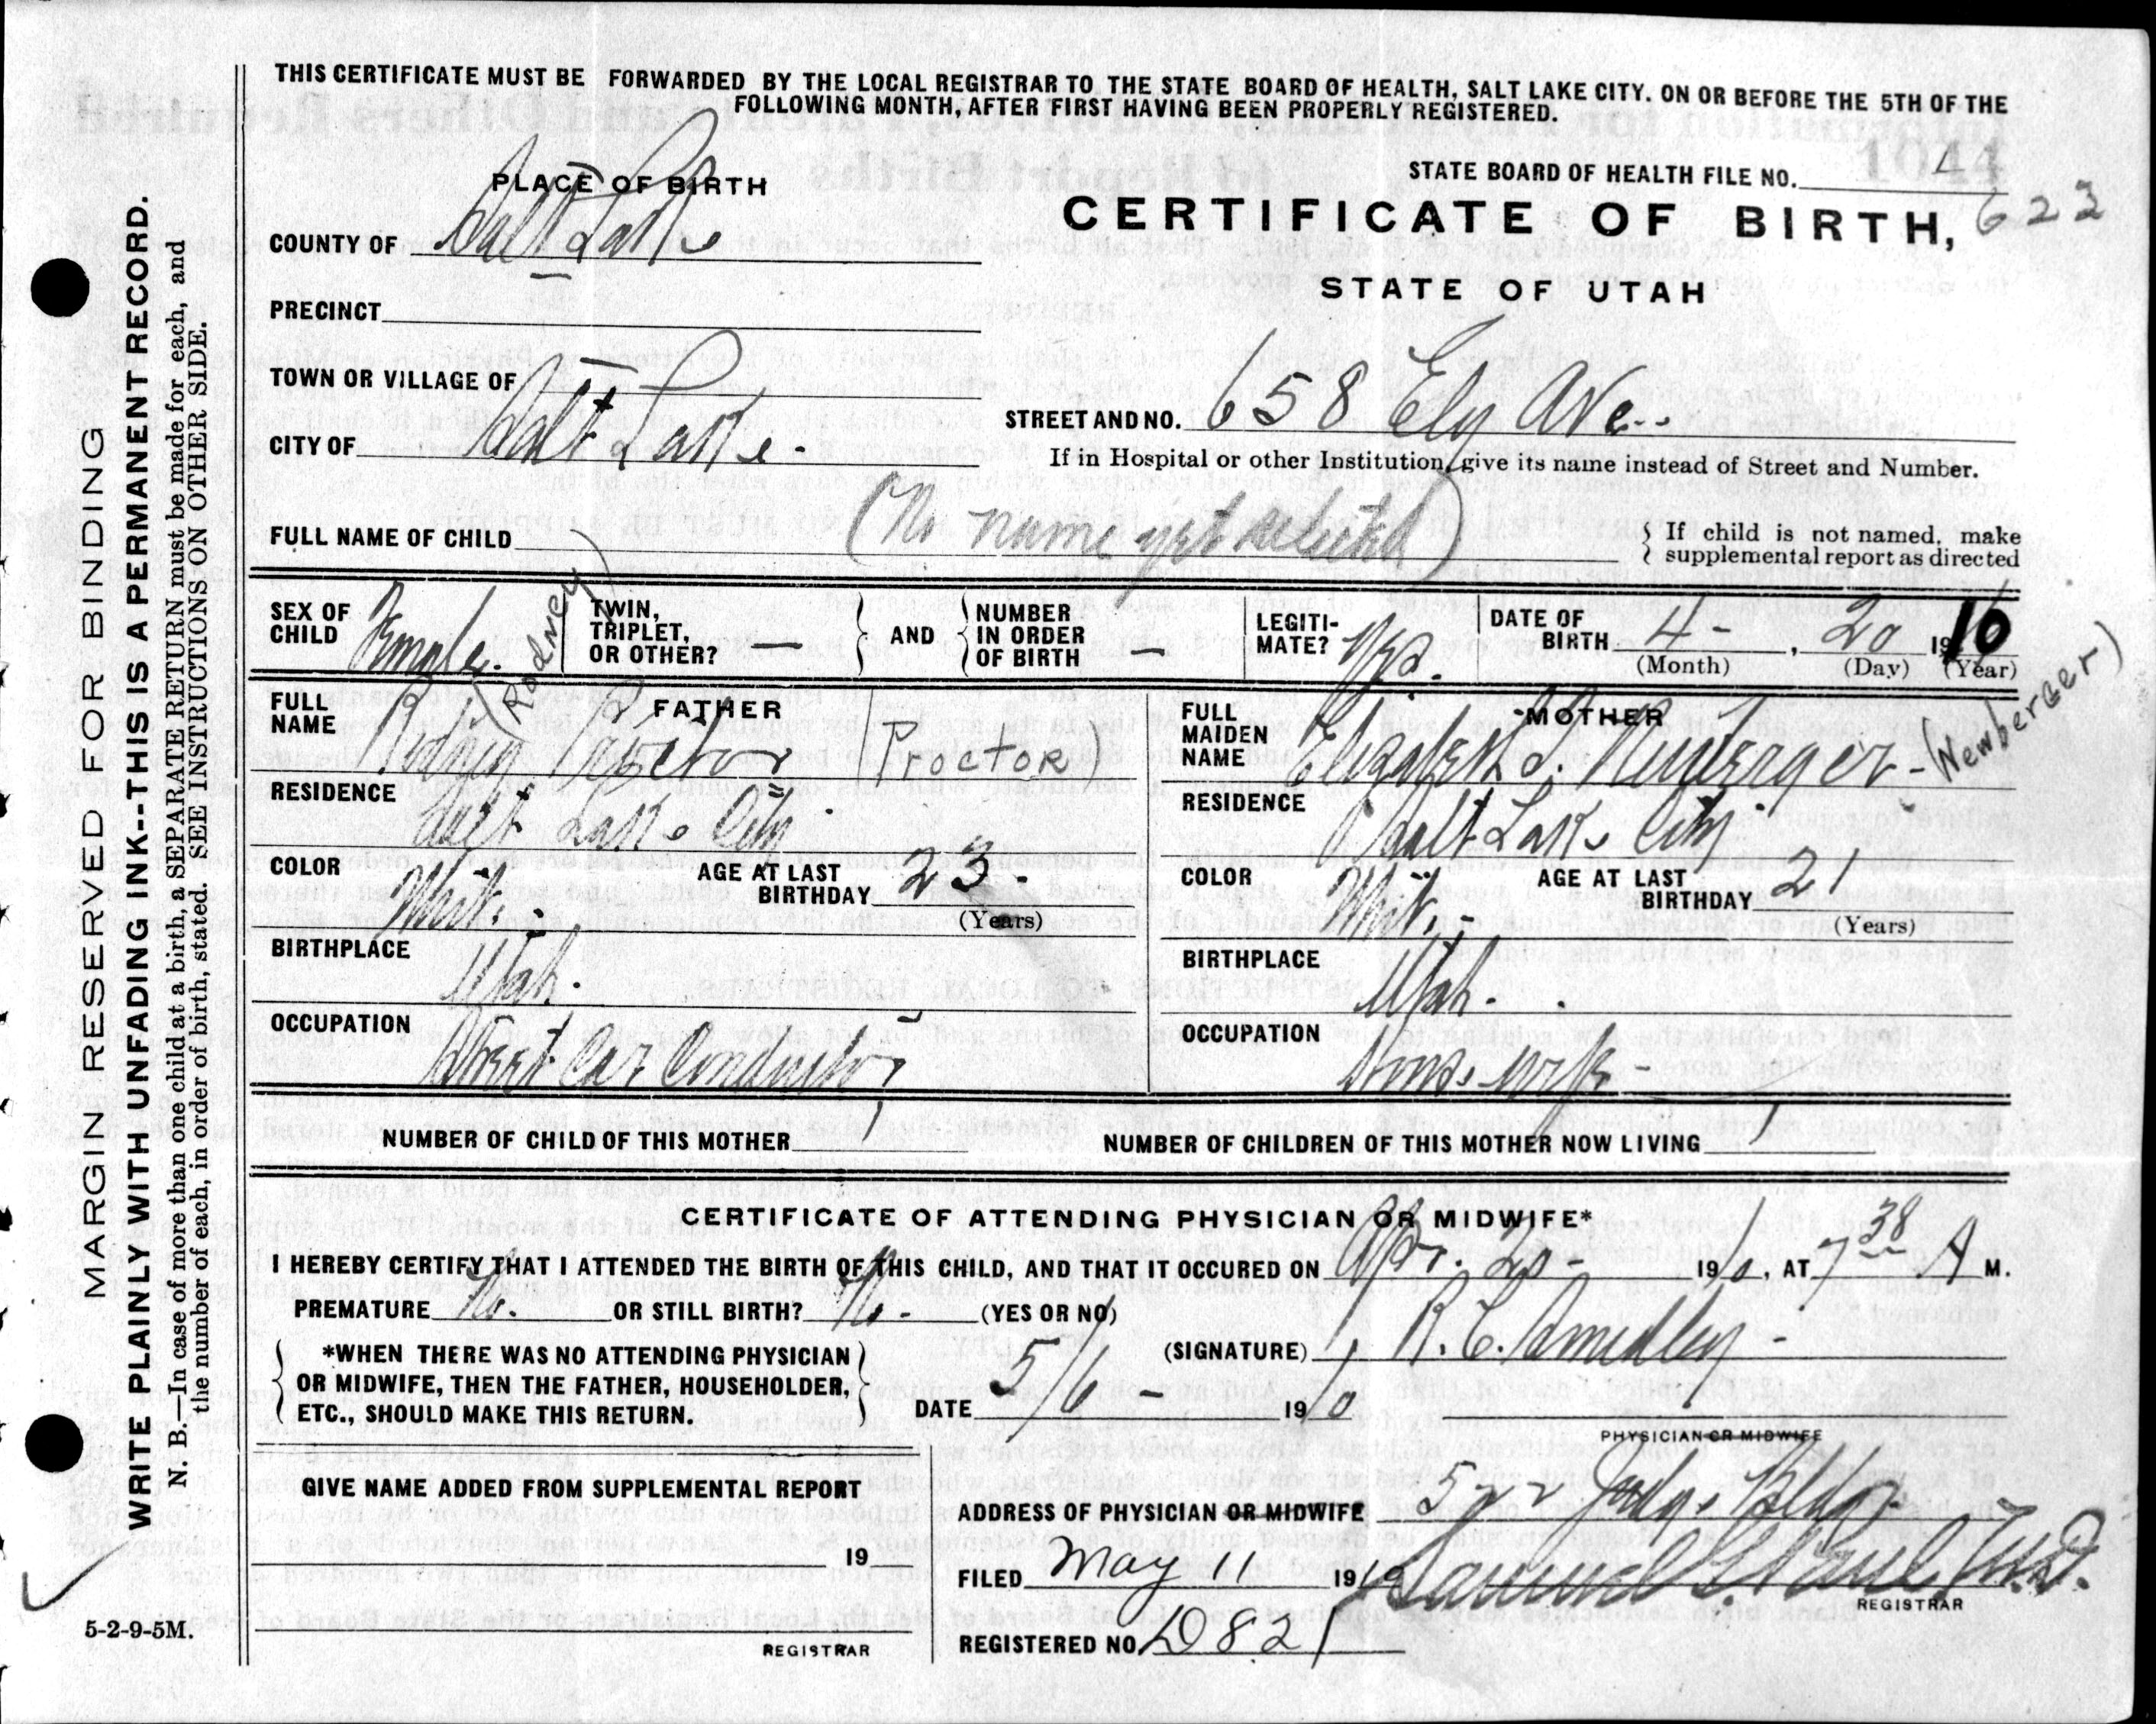 THIS CERTIFICATE MUST BE FORWARDED BY THE LOCAL REGISTRAR TO THE STATE BOARD OF HEALTH, SALT LAKE CITY. ON OR BEFORE THE 5TH OF THE
FOLLOWING MONTH, AFTER FIRST HAVING BEEN PROPERLY REGISTERED.
PLACE OF BIRTH
STATE BOARD OF HEALTH FILE NO.
CERTIFICATE OF BIRTH, 623
STATE OF UTAH
COUNTY OF Salt Lake
PRECINCT
TOWN OR VILLAGE OF
CITY OF Salt Lake.
STREET AND NO. 658 Ely Ave.
If in Hospital or other Institution, give its name instead of Street and Number.
FULL NAME OF CHILD (No name yet selected)
{ If child is not named, make
{ supplemental report as directed
SEX OF CHILD Female.
TWIN, TRIPLET, OR OTHER? —
AND
NUMBER IN ORDER OF BIRTH —
LEGITIMATE? Yes.
DATE OF BIRTH 4 - , 20 1910
(Month) (Day) (Year)
FATHER
FULL NAME Rodney Proctor (Rodney) (Proctor)
RESIDENCE Salt Lake City
COLOR White.
AGE AT LAST BIRTHDAY 23.
(Years)
BIRTHPLACE Utah.
OCCUPATION Street Car Conductor
MOTHER
FULL MAIDEN NAME Elizabeth Newberger - (Newberger)
RESIDENCE Salt Lake City
COLOR White.-
AGE AT LAST BIRTHDAY 21
(Years)
BIRTHPLACE Utah.
OCCUPATION Housewife -
NUMBER OF CHILD OF THIS MOTHER 1
NUMBER OF CHILDREN OF THIS MOTHER NOW LIVING 1
CERTIFICATE OF ATTENDING PHYSICIAN OR MIDWIFE*
I HEREBY CERTIFY THAT I ATTENDED THE BIRTH OF THIS CHILD, AND THAT IT OCCURED ON Apr. 20 - 1910, AT 7 38 A M.
PREMATURE No. OR STILL BIRTH? No. - (YES OR NO)
*WHEN THERE WAS NO ATTENDING PHYSICIAN
OR MIDWIFE, THEN THE FATHER, HOUSEHOLDER,
ETC., SHOULD MAKE THIS RETURN.
(SIGNATURE) R. C. Smedley -
DATE 5/6 - 1910
PHYSICIAN OR MIDWIFE
GIVE NAME ADDED FROM SUPPLEMENTAL REPORT
19
REGISTRAR
ADDRESS OF PHYSICIAN OR MIDWIFE 522 Judge Bldg.
FILED May 11 1910 Samuel G. Paul M.D.
REGISTRAR
REGISTERED NO. D 821
MARGIN RESERVED FOR BINDING
WRITE PLAINLY WITH UNFADING INK--THIS IS A PERMANENT RECORD.
N. B.—In case of more than one child at a birth, a SEPARATE RETURN must be made for each, and
the number of each, in order of birth, stated. SEE INSTRUCTIONS ON OTHER SIDE.
5-2-9-5M.